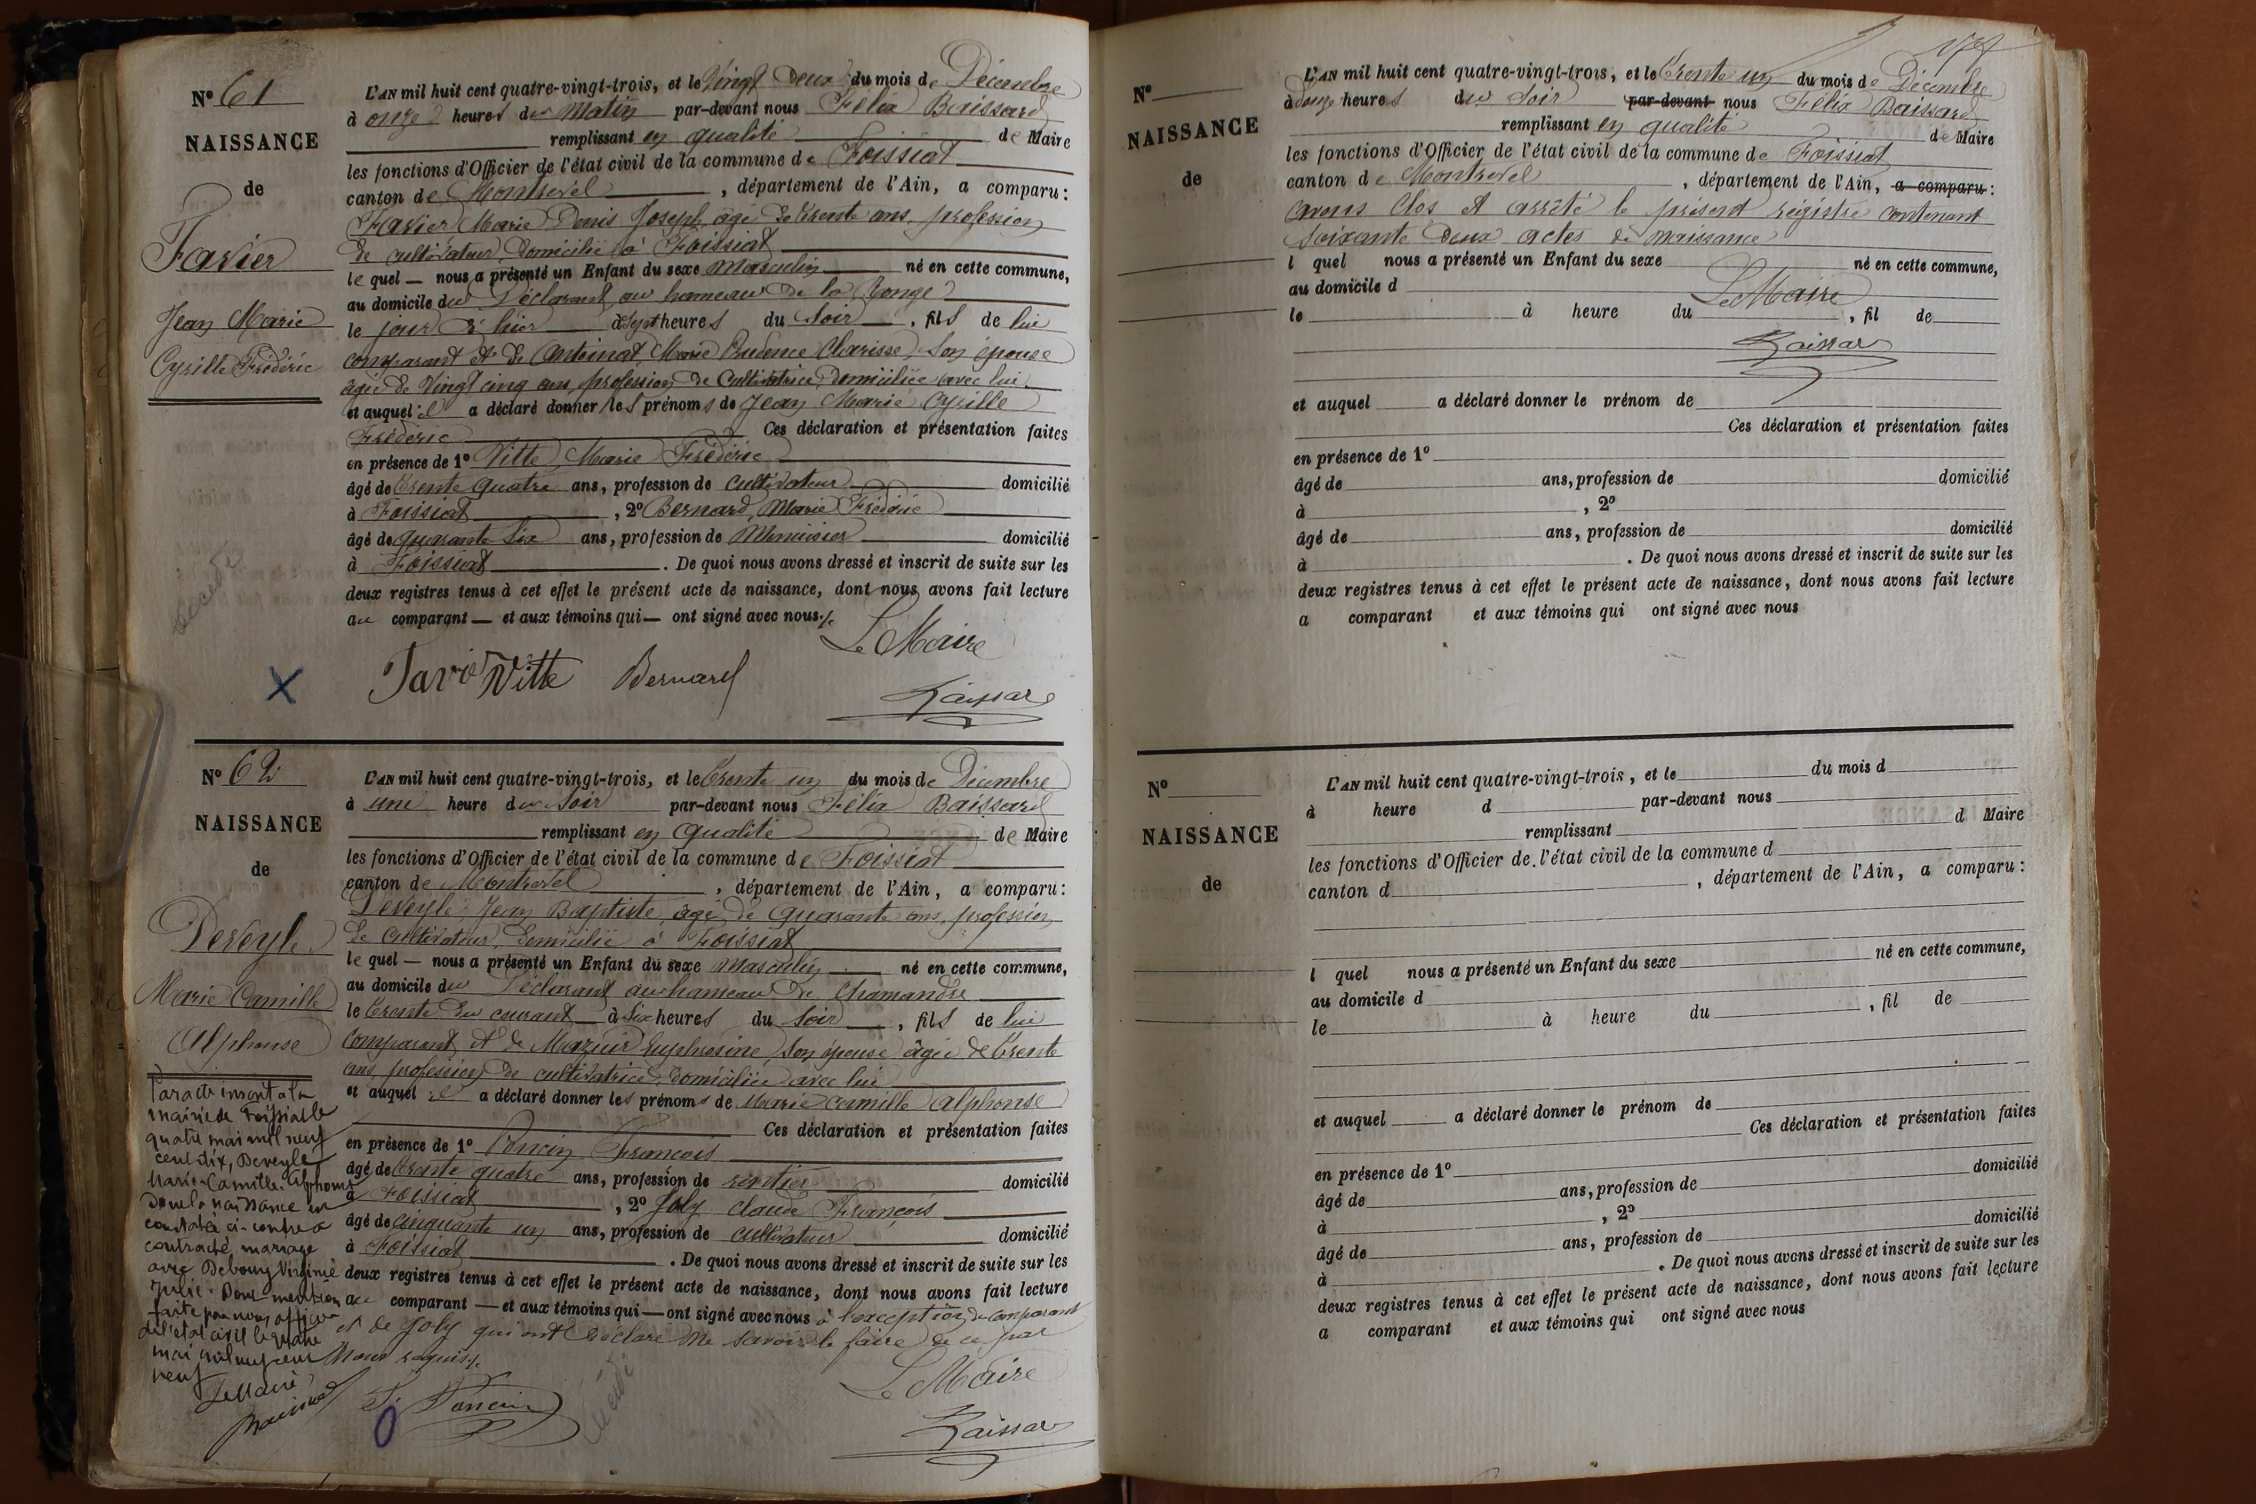 N° 61
NAISSANCE
de
Favier
Jean Marie
Cyrille Frédéric
décédé
L'AN mil huit cent quatre-vingt-trois, et le Vingt deux du mois de Décembre
à onze heures du Matin par-devant nous Félix Baissard
remplissant en qualité de Maire
les fonctions d'Officier de l'état civil de la commune de Foissiat
canton de Montrevel, département de l'Ain, a comparu:
Favier Marie Denis Joseph, âgé de trente ans, profession
de cultivateur, domicilié à Foissiat
le quel — nous a présenté un Enfant du sexe Masculin né en cette commune,
au domicile du Déclarant au hameau de la
le jour d'hier à sept heures du soir, fils de lui
comparant et de Marie Prudence Clarisse, son épouse
âgée de Vingt cinq ans, profession de Cultivatrice, domiciliée avec lui
et auquel il a déclaré donner les prénoms de Jean Marie Cyrille
Frédéric Ces déclaration et présentation faites
en présence de 1° Vitte, Marie Frédéric
âgé de trente quatre ans, profession de cultivateur domicilié
à Foissiat, 2° Bernard, Marie Frédéric
âgé de quarante six ans, profession de Menuisier domicilié
à Foissiat. De quoi nous avons dressé et inscrit de suite sur les
deux registres tenus à cet effet le présent acte de naissance, dont nous avons fait lecture
au comparant — et aux témoins qui — ont signé avec nous./.
Le Maire
Favier Vitte Bernard
Baissard
N° 62
NAISSANCE
de
Deveyle
Marie Camille
Alphonse
Par acte inscrit à la
mairie de Foissiat le
quatre mai mil neuf
cent dix, Deveyle
Marie-Camille-Alphonse
dont la naissance est
constatée ci-contre a
contracté mariage
avec Debourg Virginie
Julie. Dont mention
faite par nous officier
de l'état civil le quatre
mai mil neuf cent
Le Maire
L'AN mil huit cent quatre-vingt-trois, et le trente un du mois de Décembre
à une heure du soir par-devant nous Félix Baissard
remplissant en qualité de Maire
les fonctions d'Officier de l'état civil de la commune de Foissiat
canton de Montrevel, département de l'Ain, a comparu:
Deveyle Jean Baptiste, âgé de quarante ans, profession
de cultivateur, domicilié à Foissiat
le quel — nous a présenté un Enfant du sexe Masculin né en cette commune,
au domicile du Déclarant au hameau de Chamandre
le trente du courant à six heures du soir, fils de lui
comparant et de Mazuir Euphrosine, son épouse âgée de trente
ans, profession de cultivatrice, domiciliée avec lui
et auquel il a déclaré donner les prénoms de Marie Camille Alphonse
Ces déclaration et présentation faites
en présence de 1° Poncin François
âgé de trente quatre ans, profession de rentier domicilié
à Foissiat, 2° Joly Claude François
âgé de cinquante un ans, profession de cultivateur domicilié
à Foissiat. De quoi nous avons dressé et inscrit de suite sur les
deux registres tenus à cet effet le présent acte de naissance, dont nous avons fait lecture
au comparant — et aux témoins qui — ont signé avec nous à l'exception du comparant
et de Joly qui ont déclaré ne savoir le faire de ce par
Nous requis./.
Le Maire
F. Poncin
décédé
Baissard
N°
NAISSANCE
de
L'AN mil huit cent quatre-vingt-trois, et le trente un du mois de Décembre
à douze heures du soir par-devant nous Félix Baissard
remplissant en qualité de Maire
les fonctions d'Officier de l'état civil de la commune de Foissiat
canton de Montrevel, département de l'Ain, a comparu:
avons clos et arrêté le présent régistre contenant
soixante deux actes de naissance
l quel nous a présenté un Enfant du sexe né en cette commune,
au domicile d Le Maire
le à heure du, fil de
Baissard
et auquel a déclaré donner le prénom de
Ces déclaration et présentation faites
en présence de 1°
âgé de ans, profession de domicilié
à, 2°
âgé de ans, profession de domicilié
à. De quoi nous avons dressé et inscrit de suite sur les
deux registres tenus à cet effet le présent acte de naissance, dont nous avons fait lecture
a comparant et aux témoins qui ont signé avec nous
N°
NAISSANCE
de
L'AN mil huit cent quatre-vingt-trois, et le du mois d
à heure d par-devant nous
remplissant d Maire
les fonctions d'Officier de l'état civil de la commune d
canton d, département de l'Ain, a comparu:
l quel nous a présenté un Enfant du sexe né en cette commune,
au domicile d
le à heure du, fil de
et auquel a déclaré donner le prénom de
Ces déclaration et présentation faites
en présence de 1°
âgé de ans, profession de domicilié
à, 2°
âgé de ans, profession de domicilié
à. De quoi nous avons dressé et inscrit de suite sur les
deux registres tenus à cet effet le présent acte de naissance, dont nous avons fait lecture
a comparant et aux témoins qui ont signé avec nous